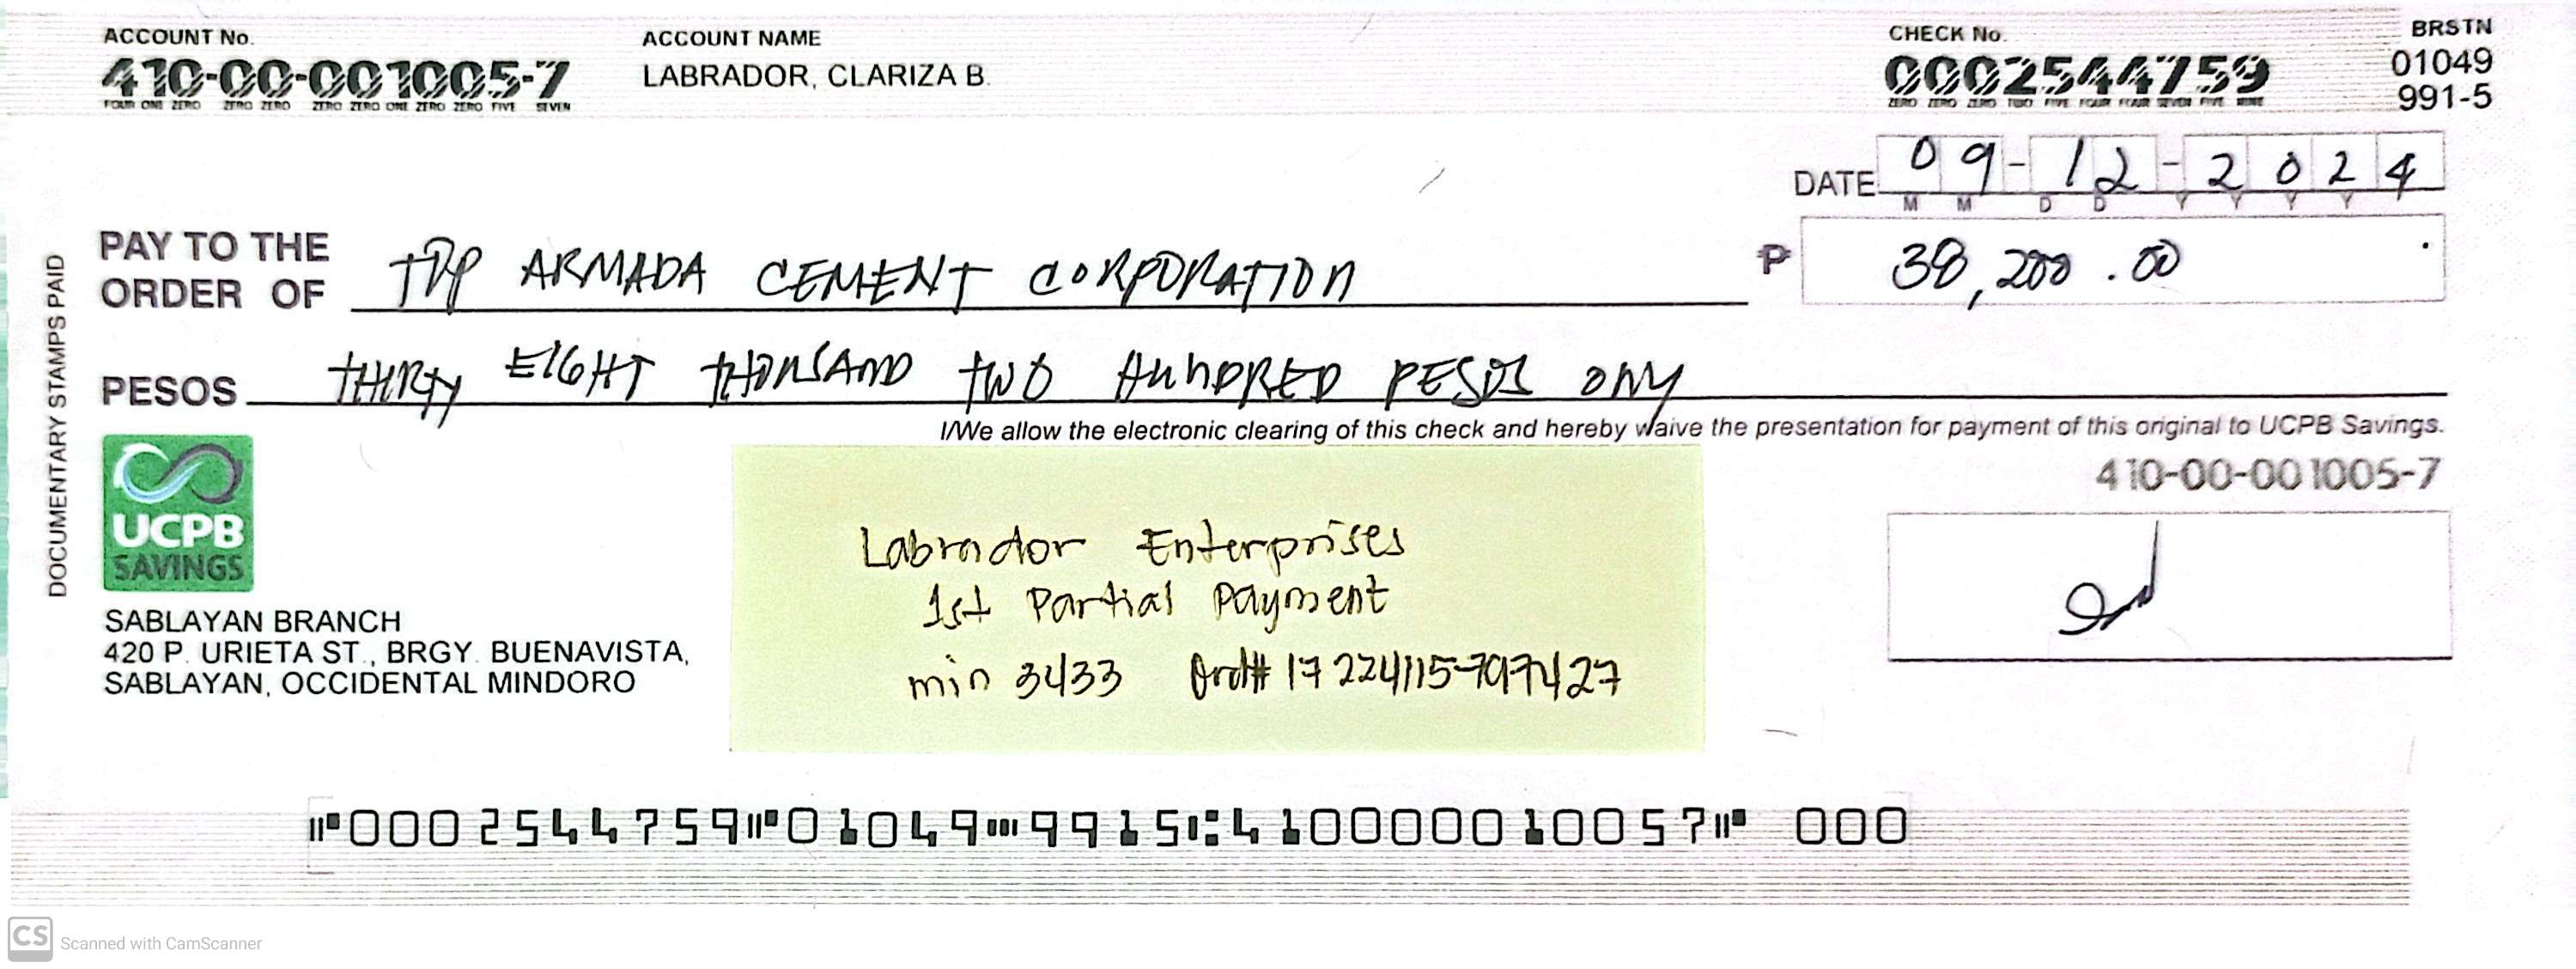 ACCOUNT No.
410-00-001005-7
FOUR ONE ZERO ZERO ZERO ZERO ZERO ONE ZERO ZERO FIVE SEVEN
ACCOUNT NAME
LABRADOR, CLARIZA B.
CHECK No.
0002544759
ZERO ZERO ZERO TWO FIVE FOUR FOUR SEVEN FIVE NINE
BRSTN
01049
991-5
DATE 09-12-2024
M M D D Y Y Y Y
DOCUMENTARY STAMPS PAID
PAY TO THE
ORDER OF ARMADA CEMENT CORPORATION
₱ 38,200.00
PESOS THIRTY EIGHT THOUSAND TWO HUNDRED PESOS ONLY
I/We allow the electronic clearing of this check and hereby waive the presentation for payment of this original to UCPB Savings.
410-00-001005-7
UCPB
SAVINGS
SABLAYAN BRANCH
420 P. URIETA ST., BRGY. BUENAVISTA,
SABLAYAN, OCCIDENTAL MINDORO
Labrador Enterprises
1st Partial Payment
min 3433 Ord# 17224115797427
⑈0002544759⑈01049⑉9915⑆410000010057⑈ 000
CS Scanned with CamScanner